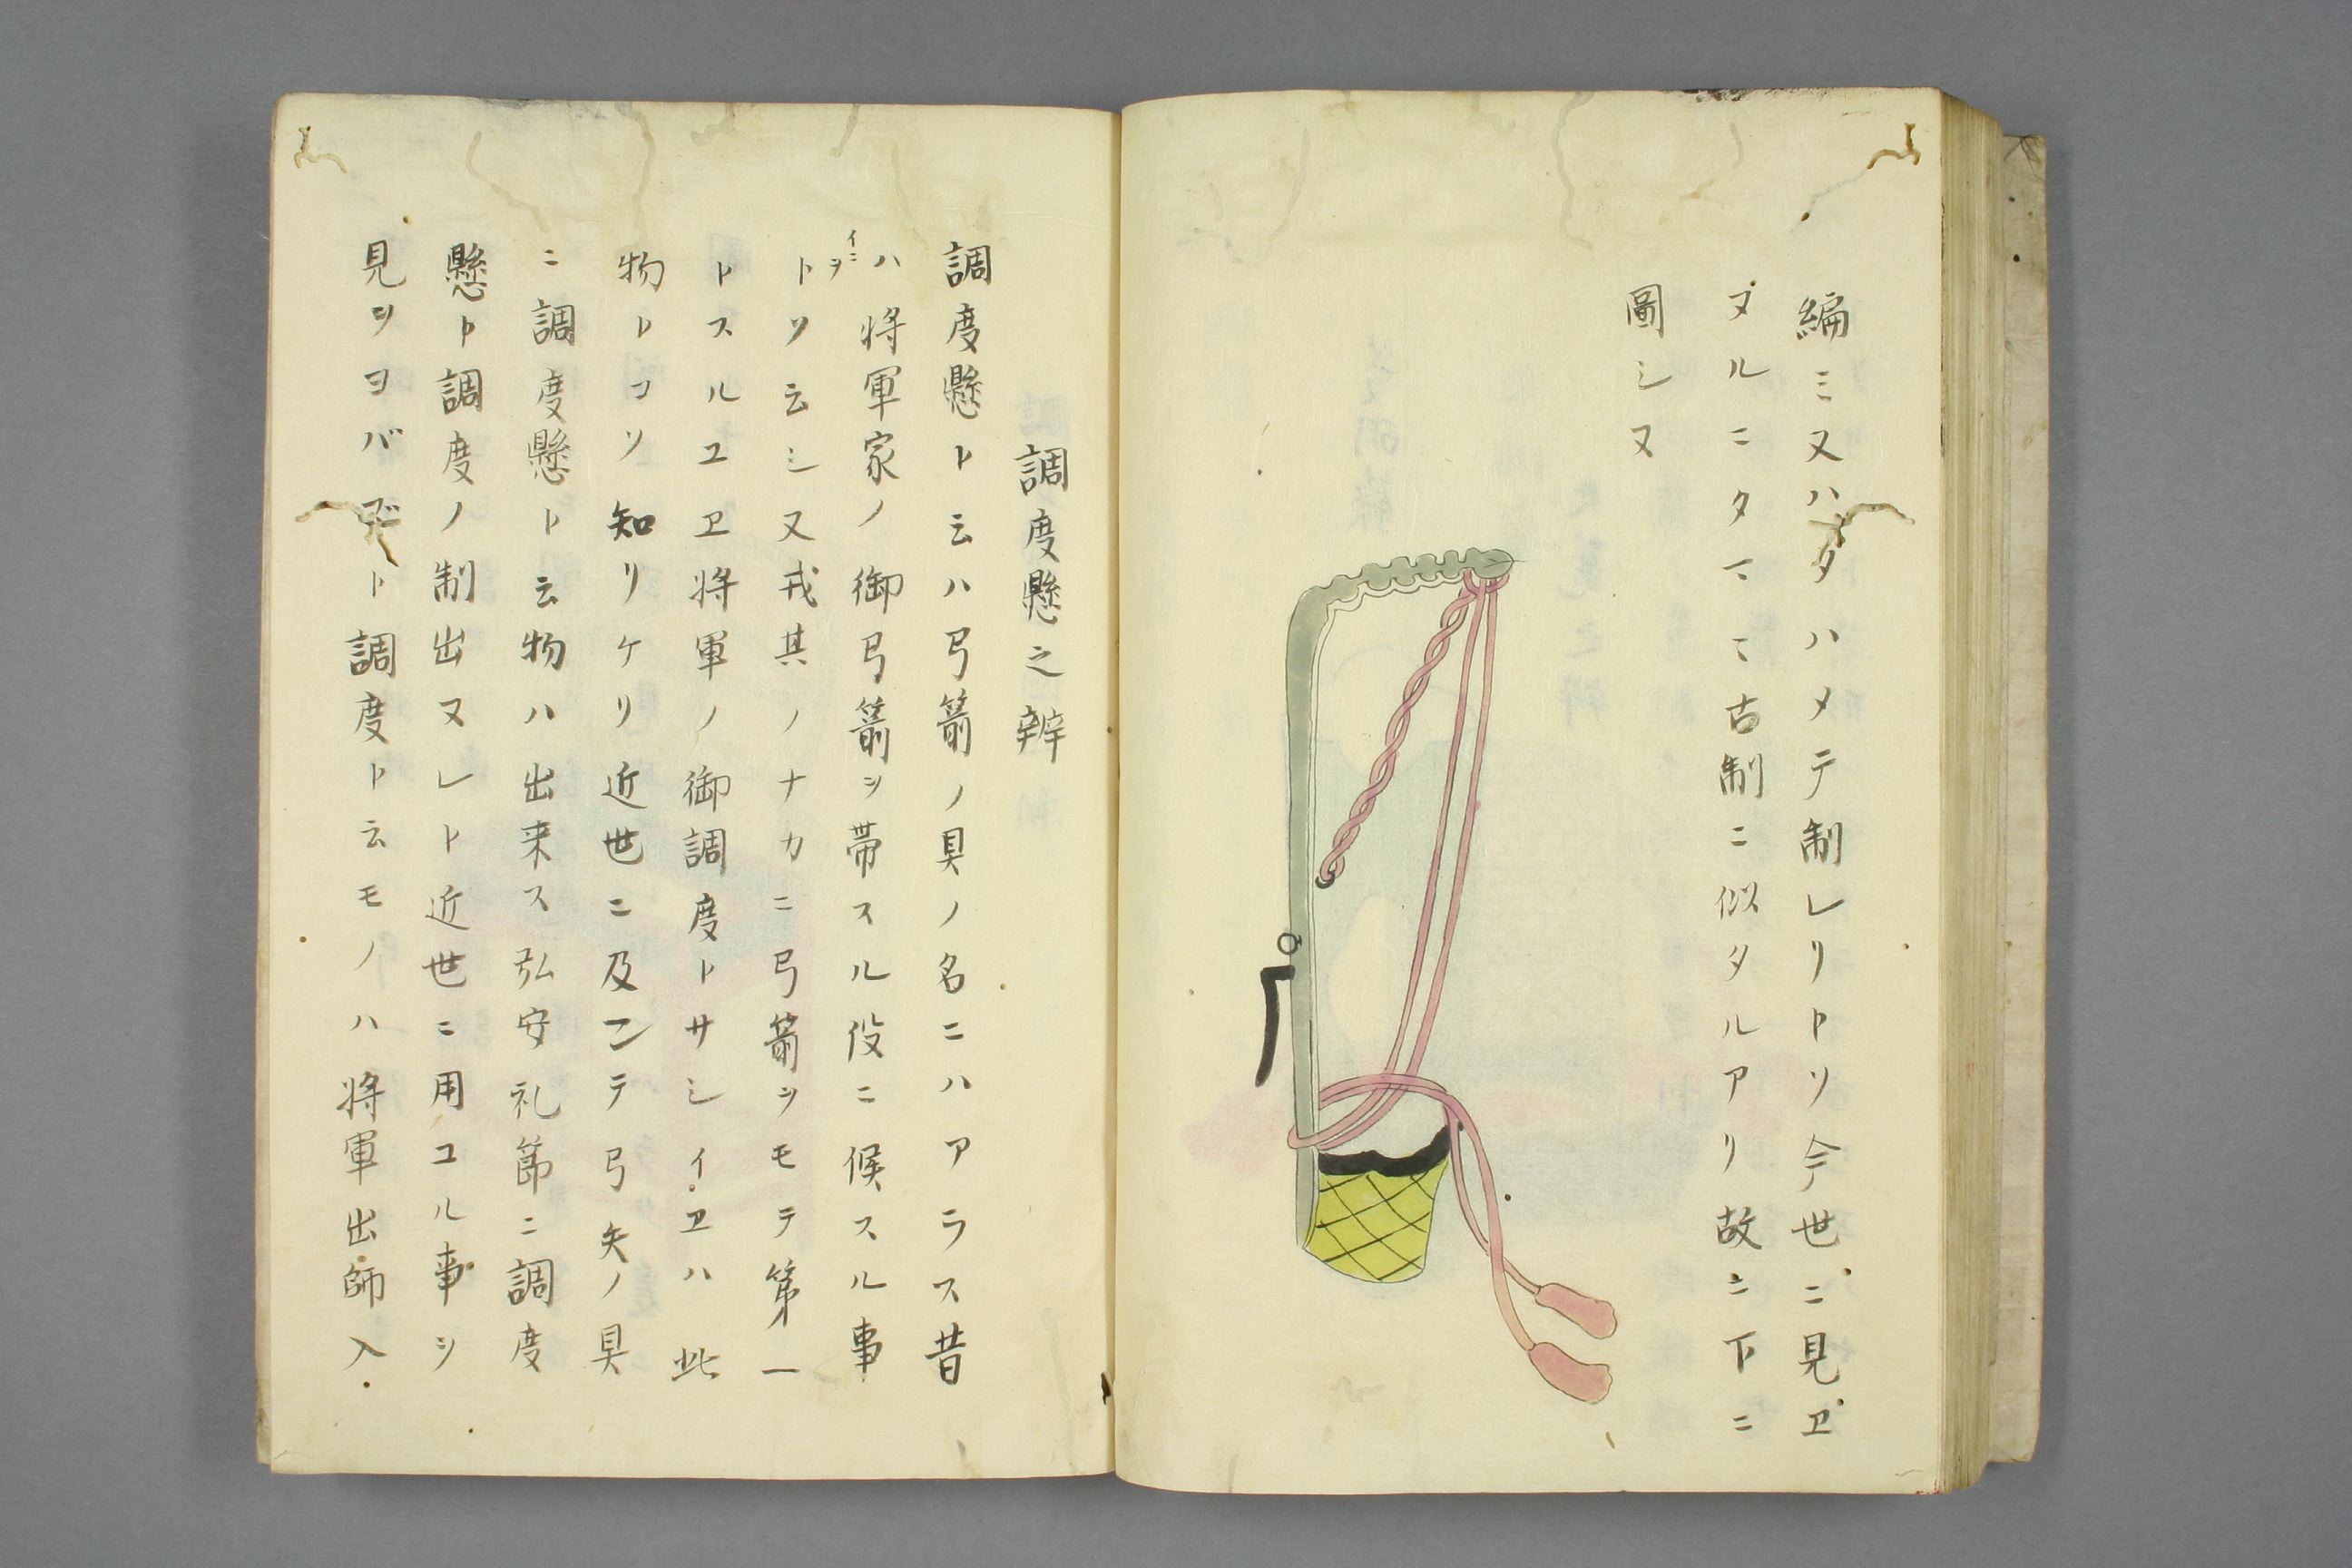 編ミ又ハタハメテ制レリトソ今世ニ見ヱ
ヌルニタマヽ古制ニ似タルアリ故ニ下ニ
圖シヌ
調度懸之辨
調度懸ト云ハ弓箭ノ具ノ名ニハアラス昔
ハ将軍家ノ御弓箭ヲ帯スル役ニ候スル事
イニ
ヲ
トソ云シ又戎其ノナカニ弓箭ヲモテ第一
トスルユヱ将軍ノ御調度トサシイヱハ此
物トコソ知リケリ近世ニ及ンテ弓矢ノ具
ニ調度懸ト云物ハ出来ス弘安礼節ニ調度
懸ト調度ノ制出ヌレト近世ニ用ユル事ヲ
見ヲヨバズト調度ト云モノハ将軍出師入